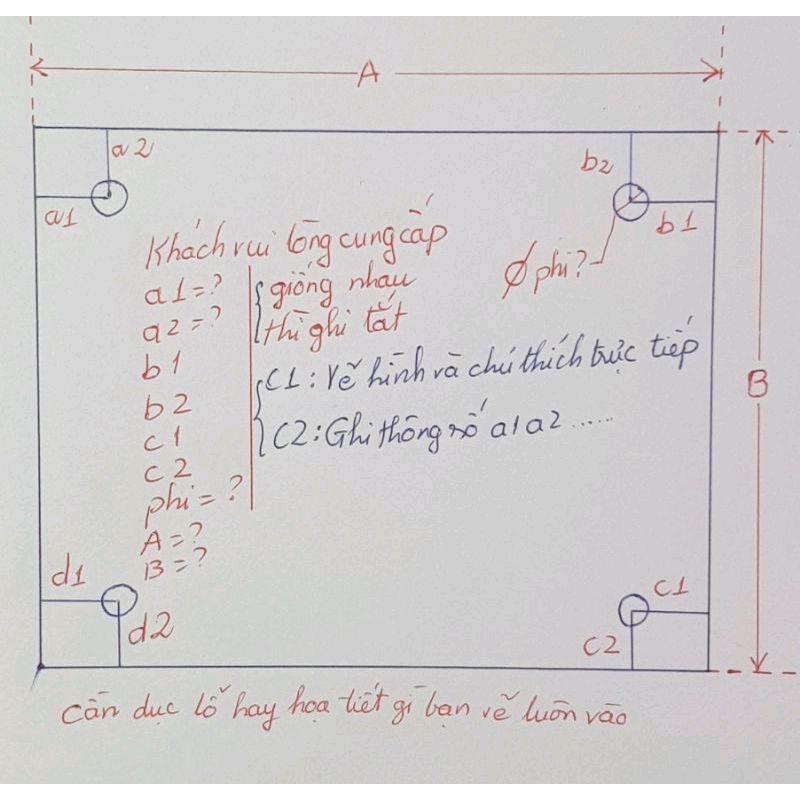 A
a2
b2
a1
b1
Khách vui lòng cung cấp
Ø phi?
a1=?
giống nhau
a2=?
thì ghi tắt
b1
C1: Vẽ hình và chú thích trực tiếp
B
b2
C2: Ghi thông số a1 a2 ......
c1
c2
phi = ?
A = ?
B = ?
d1
c1
d2
c2
cần đục lỗ hay họa tiết gì bạn vẽ luôn vào